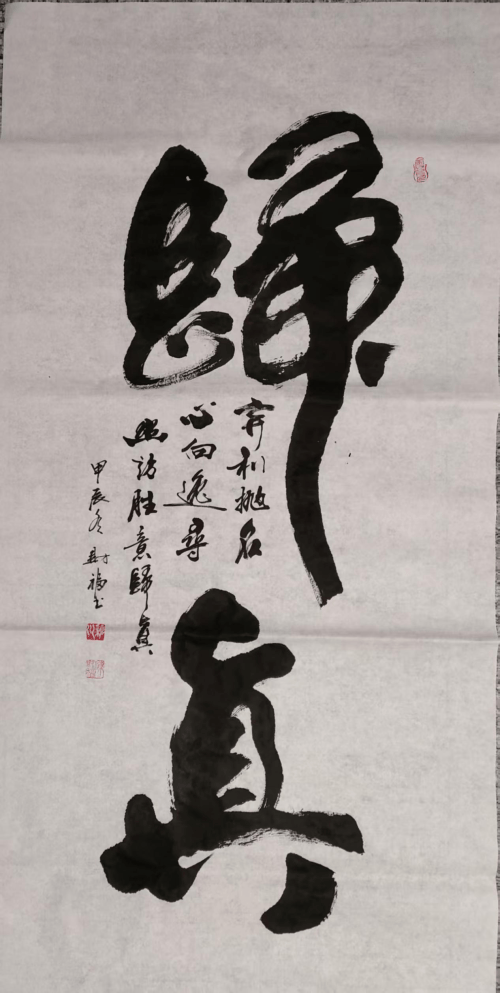 歸真
弃利抛名
心向逸尋
幽訪胜意歸真
甲辰冬 福书